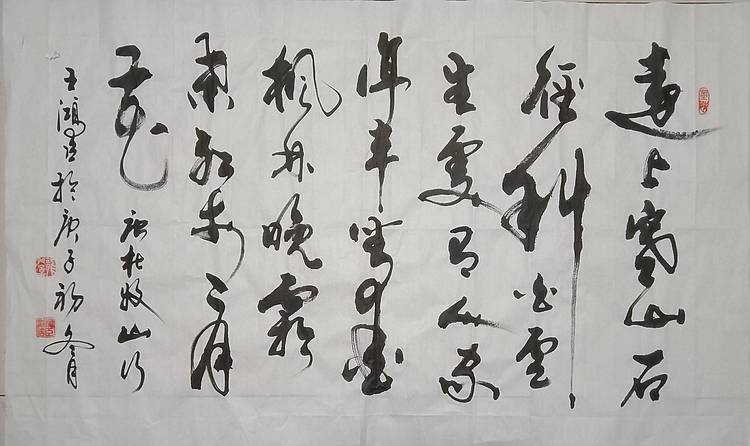 遠上寒山石
徑斜白雲
生處有人家
停車坐愛
楓林晚霜
葉紅於二月
花 唐杜牧山行
王鴻於庚子初冬月